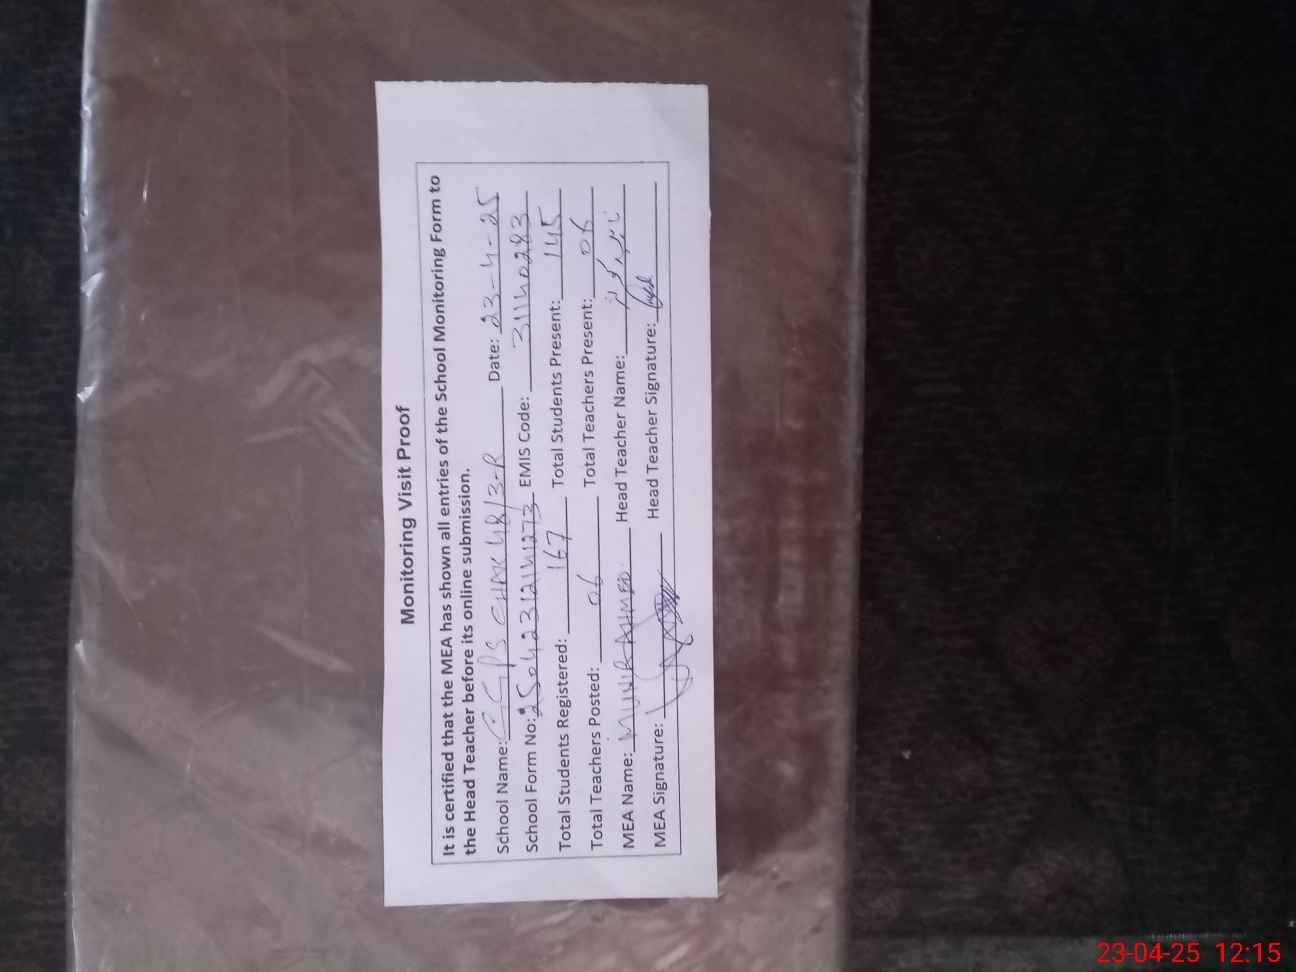 Monitoring Visit Proof
It is certified that the MEA has shown all entries of the School Monitoring Form to
the Head Teacher before its online submission.
School Name: GGPS CHAK 48/3-R Date: 23-4-25
School Form No: 25042312141273 EMIS Code: 31140283
Total Students Registered: 167 Total Students Present: 145
Total Teachers Posted: 06 Total Teachers Present: 06
MEA Name: MUNIR AHMED Head Teacher Name:
MEA Signature: Head Teacher Signature:
23-04-25 12:15